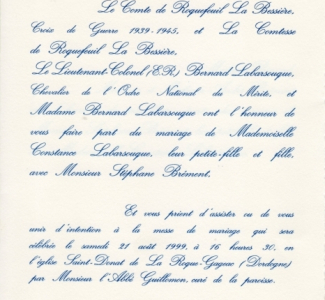 Le Comte de Roquefeuil La Bessière,
Croix de Guerre 1939-1945, et La Comtesse
de Roquefeuil La Bessière,
Le Lieutenant-Colonel (E.R.) Bernard Labarsouque,
Chevalier de l'Ordre National du Mérite, et
Madame Bernard Labarsouque ont l'honneur de
vous faire part du mariage de Mademoiselle
Constance Labarsouque, leur petite-fille et fille,
avec Monsieur Stéphane Brémont.
Et vous prient d'assister ou de vous
unir d'intention à la messe de mariage qui sera
célébrée le samedi 21 août 1999, à 16 heures 30, en
l'église Saint-Donat de La Roque-Gageac (Dordogne)
par Monsieur l'Abbé Guillemon, curé de la paroisse.